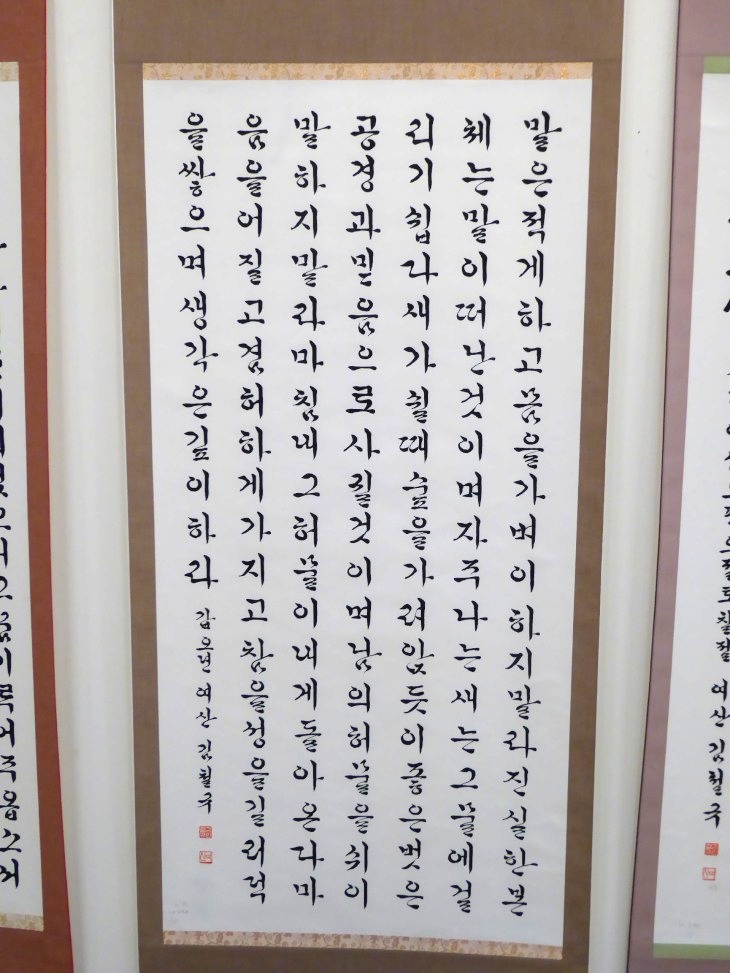 여산 김철국
말은적게하고몸을가벼이하지말라진실한본
체는말이떠난것이며자주나는새는그물에걸
리기쉽다새가쉴때숲을가려앉듯이좋은벗은
공경과믿음으로사귈것이며남의허물을쉬이
말하지말라마침내그허물이내게돌아온다마
음을어질고겸허하게가지고참을성을길러덕
을쌓으며생각은깊이하라 갑오년 여산 김철국
주옵소서